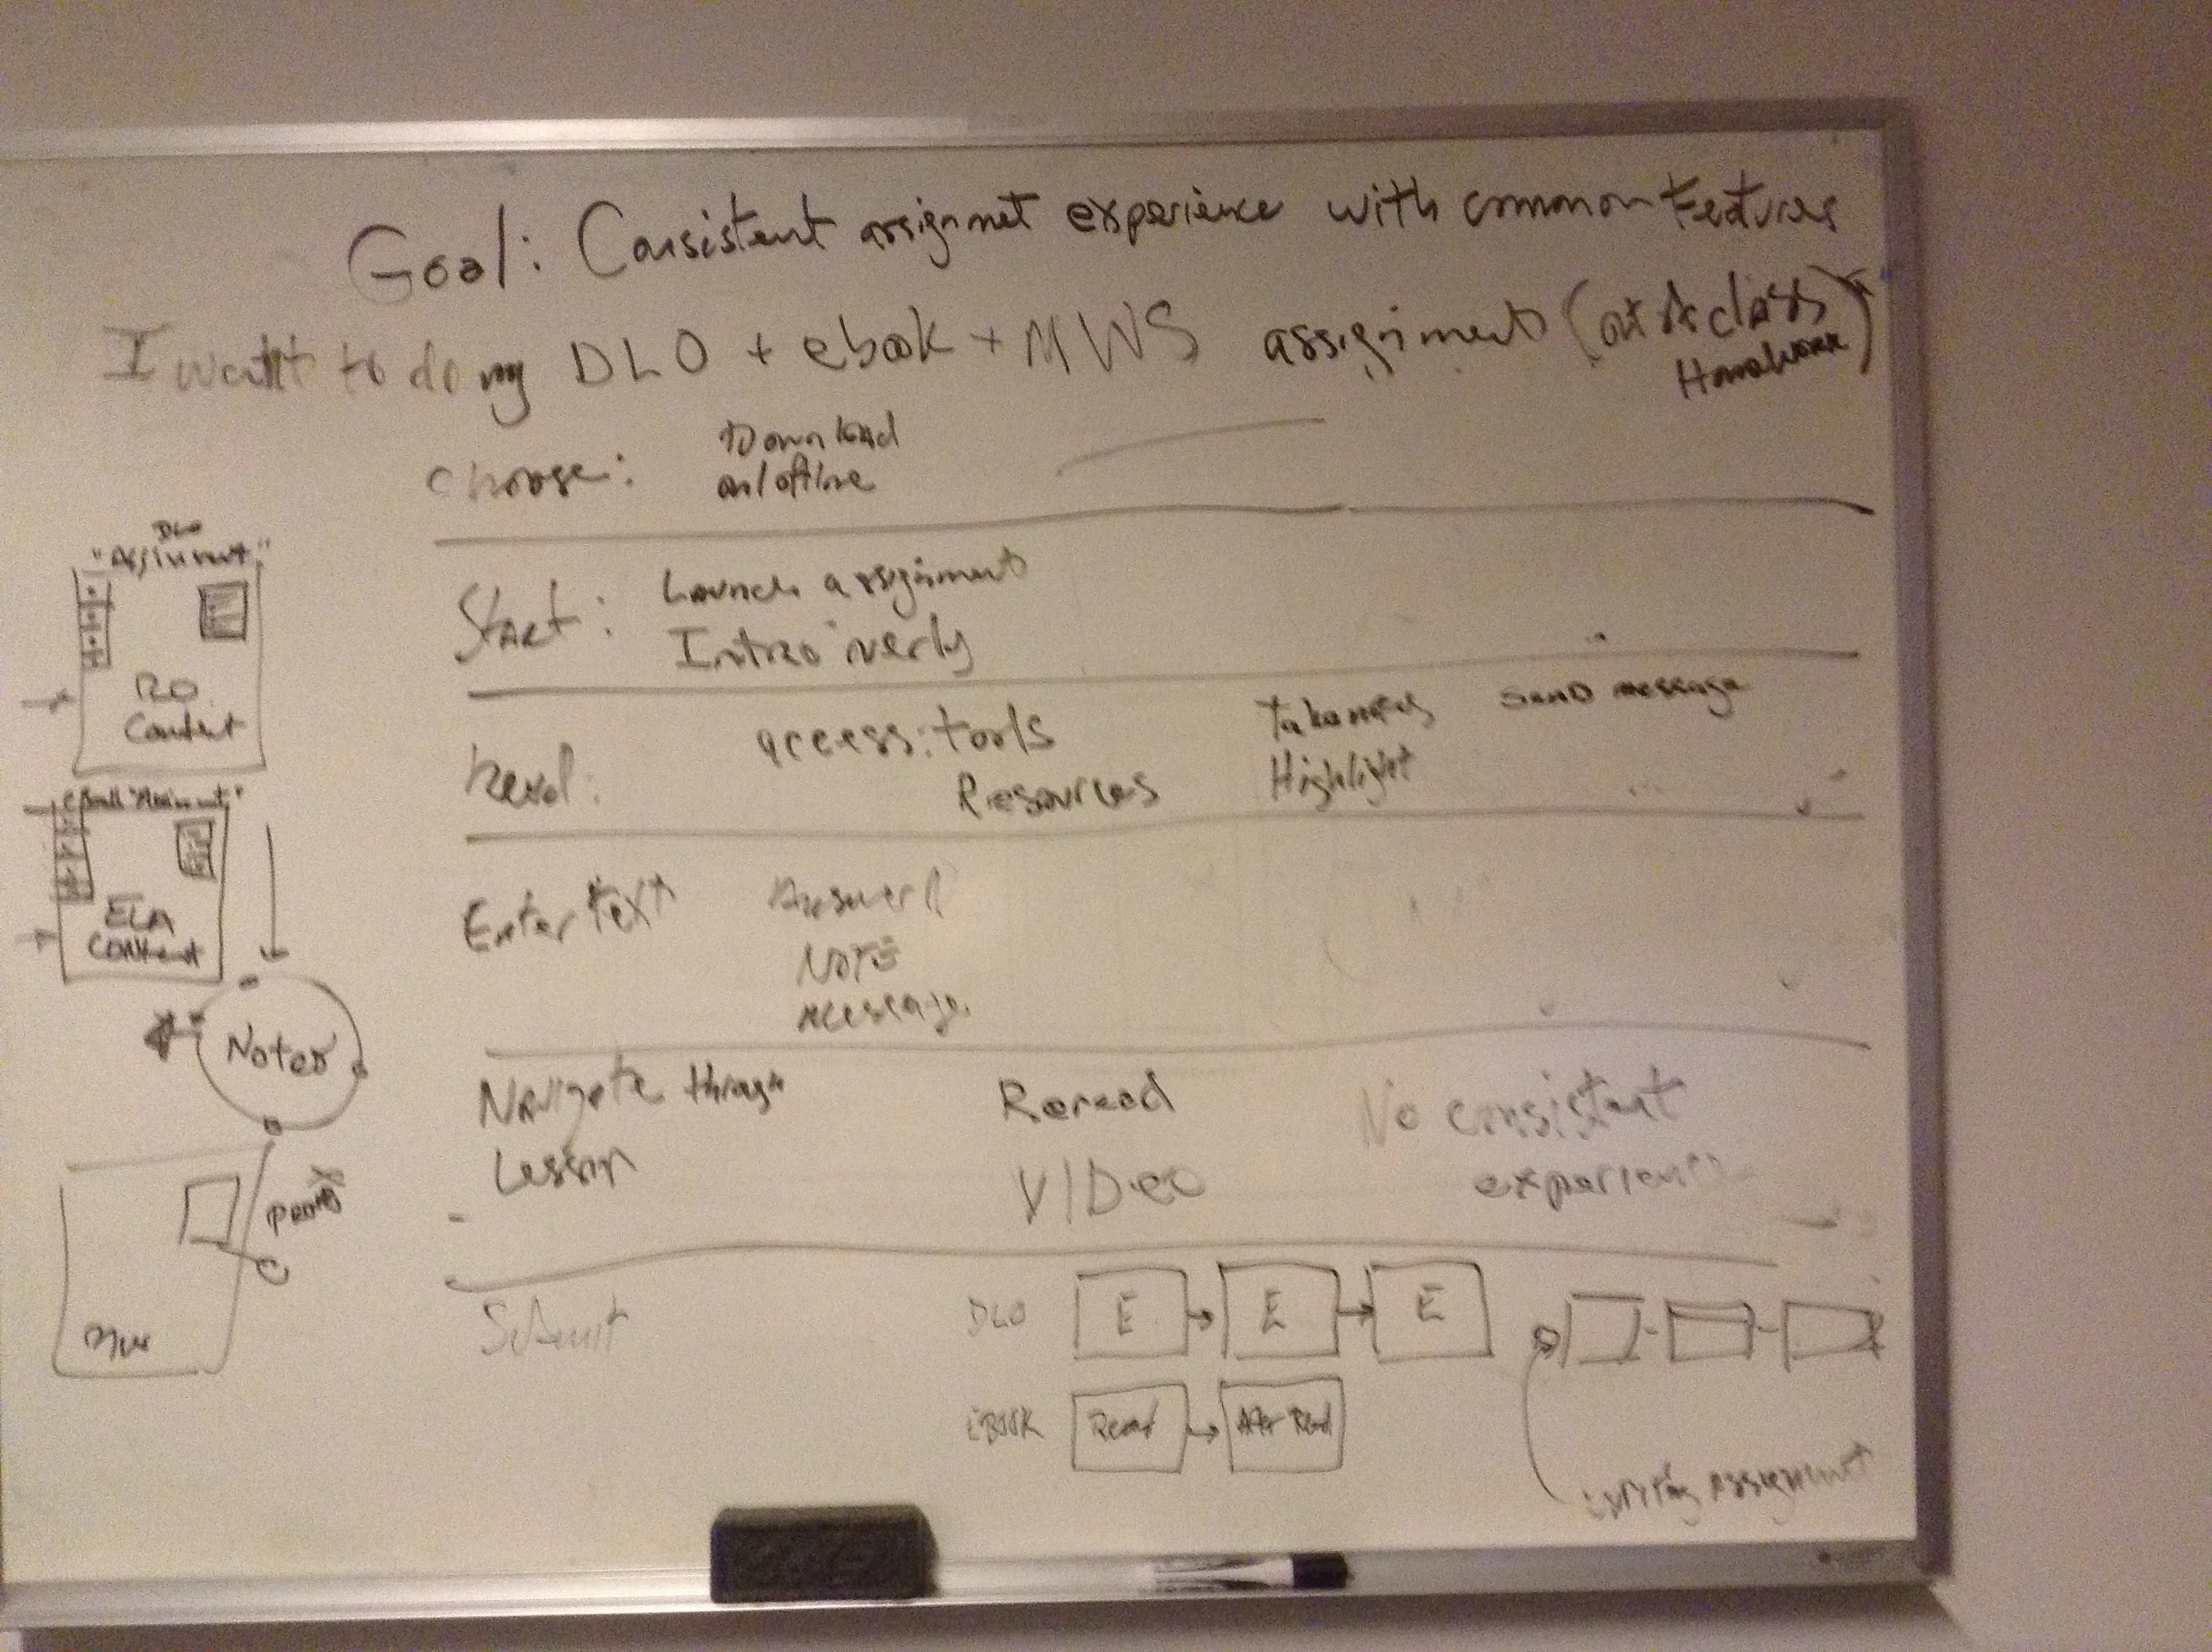 Goal: Consistent assignmet experience with common Features
I want to do my DLO + ebook + MWS assignment (
class)
Homework
choose: Download
on/offline
Start: Launch assignment
Intro
Read: access: tools
Resources
Take notes
Highlight
Send message
Enter text
Answer
NOTE
message
Navigate through
Lesson
Reread
VIDeo
No consistent
experience
Submit
DLO E E E
eBOOK Read After Read
writing assignment
DLO
"Assinment"
Content
ELA
Content
Notes